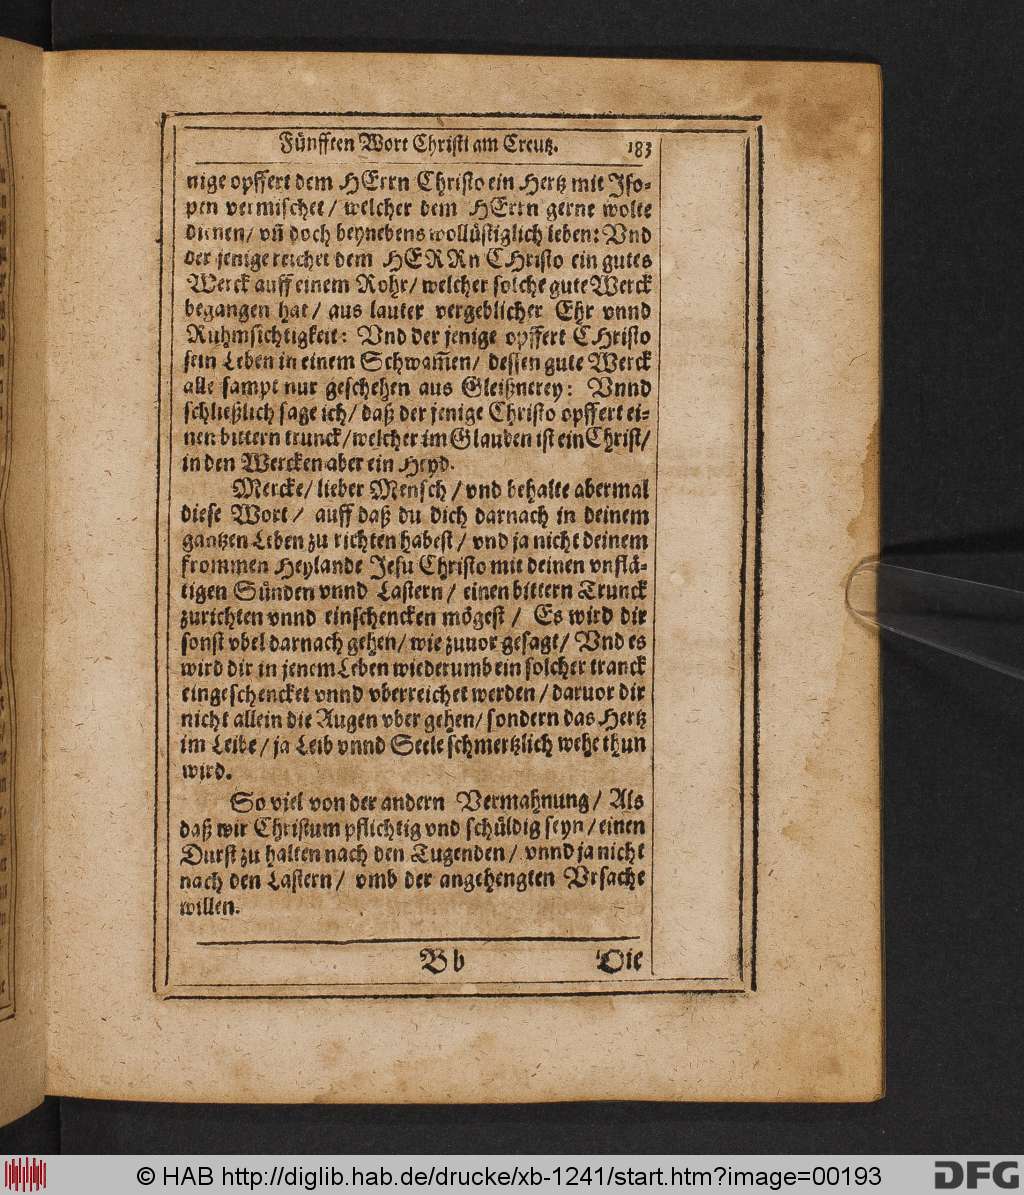 Fünfften Wort Christi am Creutz. 183
nige opffert dem HErrn Christo ein Hertz mit Jso-
pen vermischet / welcher dem HErrn gerne wolte
dienen / vñ doch beynebens wollüstiglich leben: Vnd
der jenige reichet dem HERRn CHristo ein gutes
Werck auff einem Rohr / welcher solche gute Werck
begangen hat / aus lauter vergeblicher Ehr vnnd
Ruhmsichtigkeit: Vnd der jenige opffert CHristo
sein Leben in einem Schwam̃en / dessen gute Werck
alle sampt nur geschehen aus Gleißnerey: Vnnd
schließlich sage ich / daß der jenige Christo opffert ei-
nen bittern trunck / welcher im Glauben ist ein Christ /
in den Wercken aber ein Heyd.
Mercke / lieber Mensch / vnd behalte abermal
diese Wort / auff daß du dich darnach in deinem
gantzen Leben zu richten habest / vnd ja nicht deinem
frommen Heylande Jesu Christo mit deinen vnflä-
tigen Sünden vnnd Lastern / einen bittern Trunck
zurichten vnnd einschencken mögest / Es wird dir
sonst vbel darnach gehen / wie zuuor gesagt / Vnd es
wird dir in jenem Leben wiederumb ein solcher tranck
eingeschencket vnnd vberreichet werden / daruor dir
nicht allein die Augen vber gehen / sondern das Hertz
im Leibe / ja Leib vnnd Seele schmertzlich wehe thun
wird.
So viel von der andern Vermahnung / Als
daß wir Christum pflichtig vnd schüldig seyn / einen
Durst zu halten nach den Tugenden / vnnd ja nicht
nach den Lastern / vmb der angehengten Vrsache
willen.
B b Die
© HAB http://diglib.hab.de/drucke/xb-1241/start.htm?image=00193
DFG